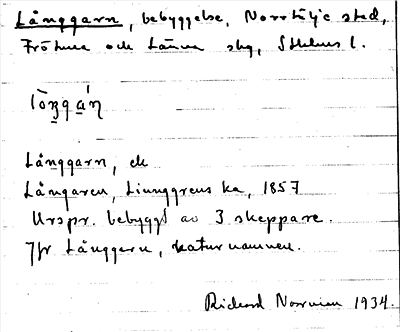 Långgarn, bebyggelse, Norrtälje stad,
Frötuna och Länna skg, Sthlms l.
Långgarn, ek
Långaren, Ljunggrens ka, 1857
Urspr. bebyggt av 3 skeppare.
Jfr Långgarn, naturnamnen.
Rickard 1934.